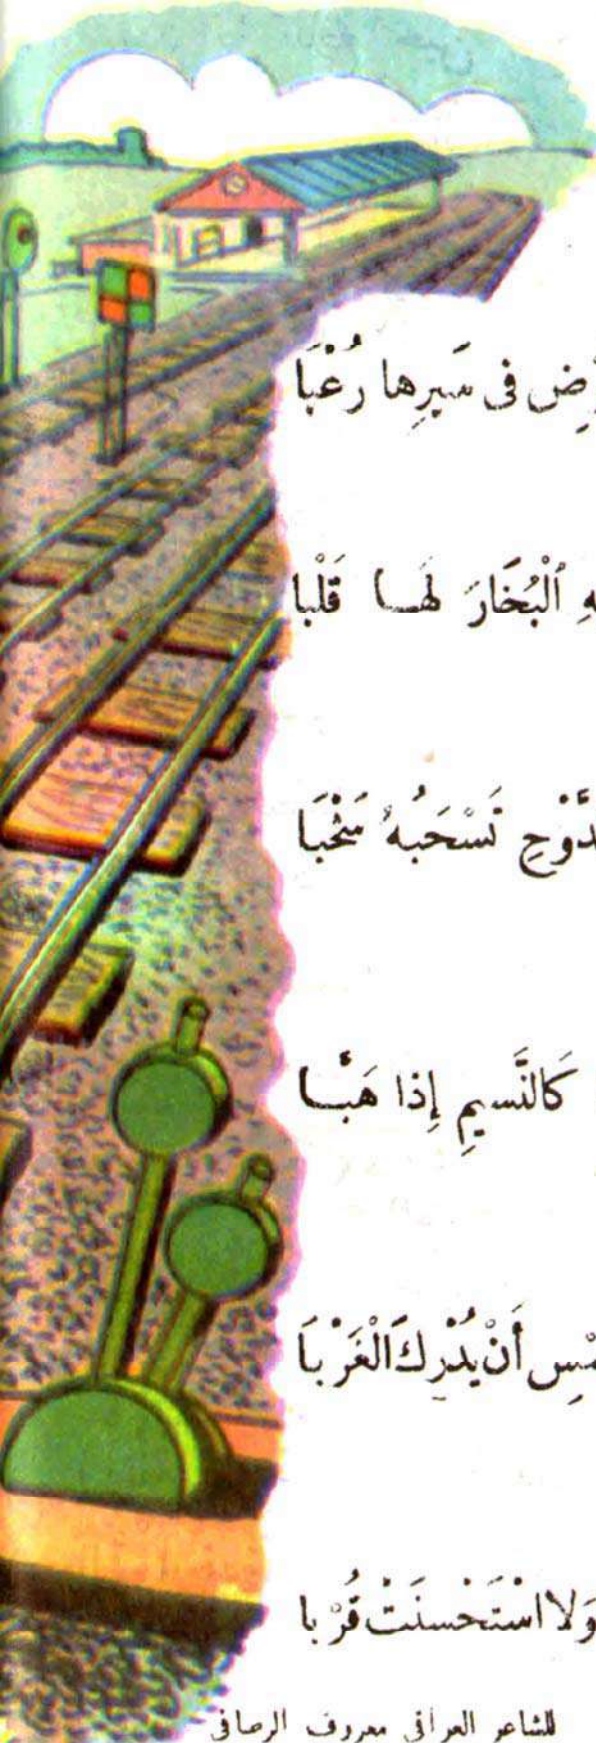 في سَيرِها رُعْبَا
ٱلْبُخَارَ لَهَا قَلْبا
تَسْحَبُهُ سَحْبَا
كَالنَّسيمِ إِذا هَبَّا
أَنْ يُدْرِكَ الْغَرْبَا
وَلا اسْتَحْسنَتْ قُرْبا
للشاعر العراقي معروف الرصافي